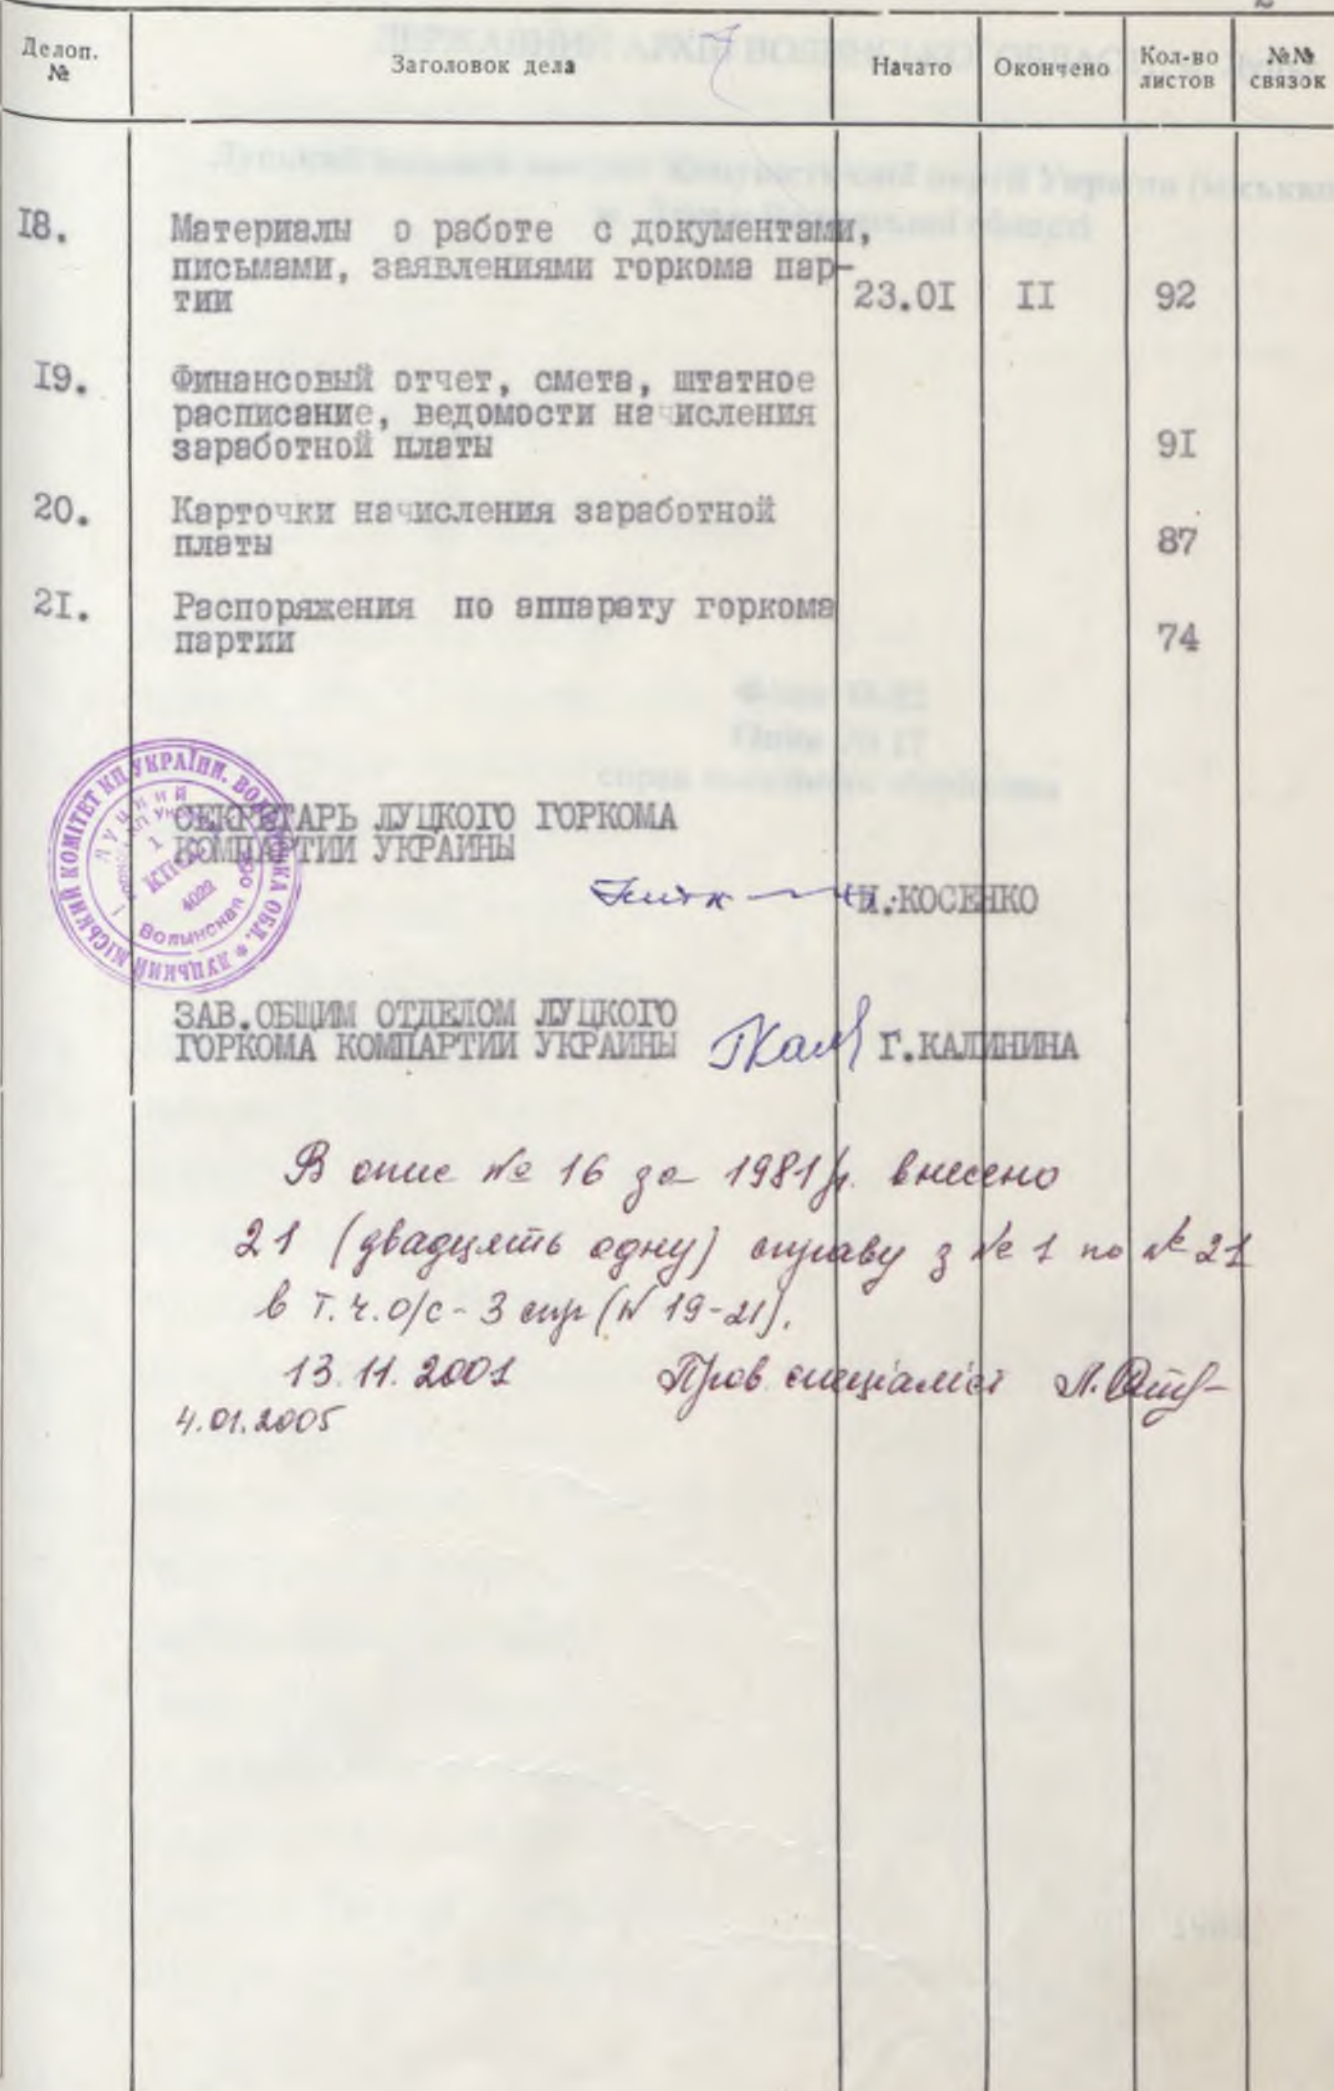 2
Делоп. №
Заголовок дела
Начато
Окончено
Кол-во листов
№№ связок
18.
Материалы о работе с документами,
письмами, заявлениями горкома пар-
тии
23.01
II
92
19.
Финансовый отчет, смета, штатное
расписание, ведомости начисления
заработной платы
91
20.
Карточки начисления заработной
платы
87
21.
Распоряжения по аппарату горкома
партии
74
ЛУЦЬКИЙ МІСЬКИЙ КОМІТЕТ КП УКРАЇНИ. ВОЛИНСЬКА ОБЛ.
КПСС
4022
Волынская обл.
СЕКРЕТАРЬ ЛУЦКОГО ГОРКОМА
КОМПАРТИИ УКРАИНЫ
КОСЕНКО
ЗАВ.ОБЩИМ ОТДЕЛОМ ЛУЦКОГО
ГОРКОМА КОМПАРТИИ УКРАИНЫ
Г.КАЛИНИНА
В опис № 16 за 1981 р. внесено
21 (двадцять одну) справу з № 1 по № 21
в т.ч. о/с - 3 спр (N 19-21).
13.11.2001 Пров. спеціаліст Л.
4.01.2005